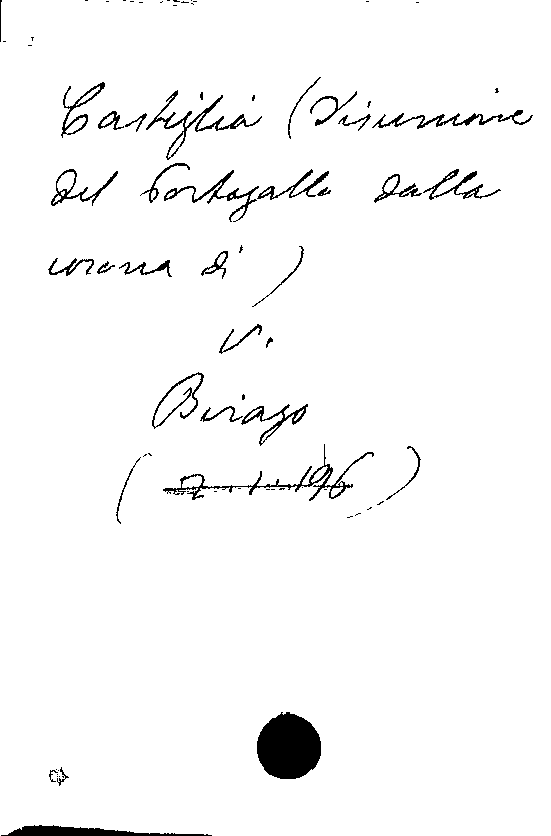 Castiglia (Disunione
del Portogallo dalla
corona di )
v.
Birago
( 7.1.196 )